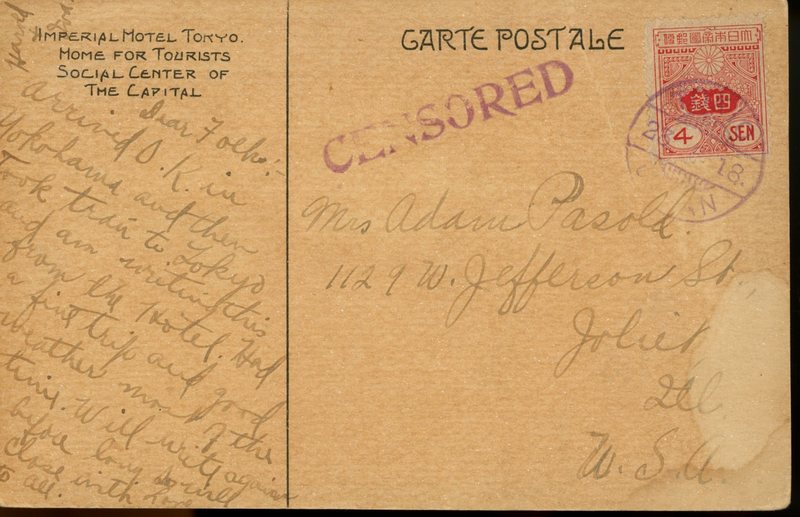 IMPERIAL HOTEL TOKYO.
HOME FOR TOURISTS
SOCIAL CENTER OF
THE CAPITAL
Dear Folks:-
arrived O.K. in
Yokohama and then
Took train to Tokyo
and am writing this
from the Hotel. Had
a fine trip and good
weather most of the
time. Will write again
before long so will
close with Love
to all.
CARTE POSTALE
CENSORED
大日本帝國郵便
四錢
4 SEN
18.
Mrs Adam Pasold
1129 W. Jefferson St.,
Joliet
Ill.
U.S.A.